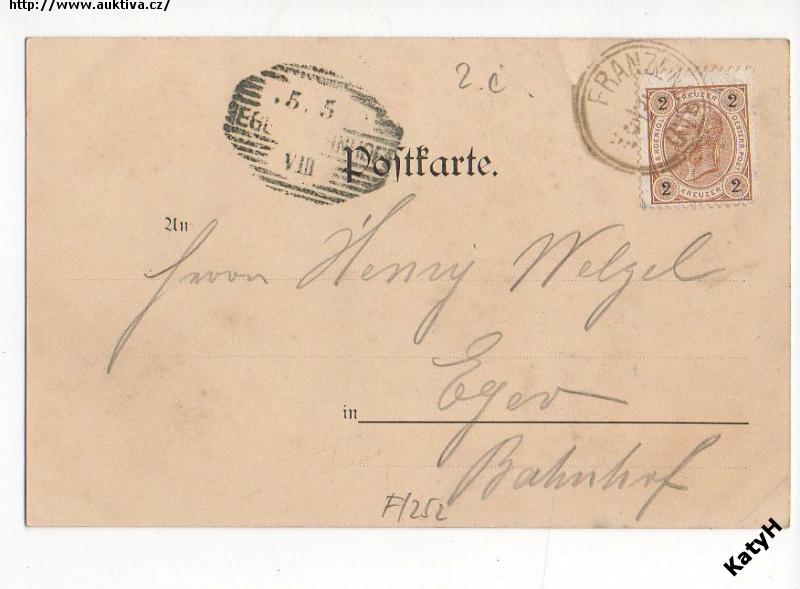 http://www.auktiva.cz/
2.č.
.5.5
VIII
FRANZEN
2 KREUZER 2
2 KREUZER 2
Postkarte.
An
Herrn Henry Welzel
Eger
in
Bahnhof
F/252
KatyH